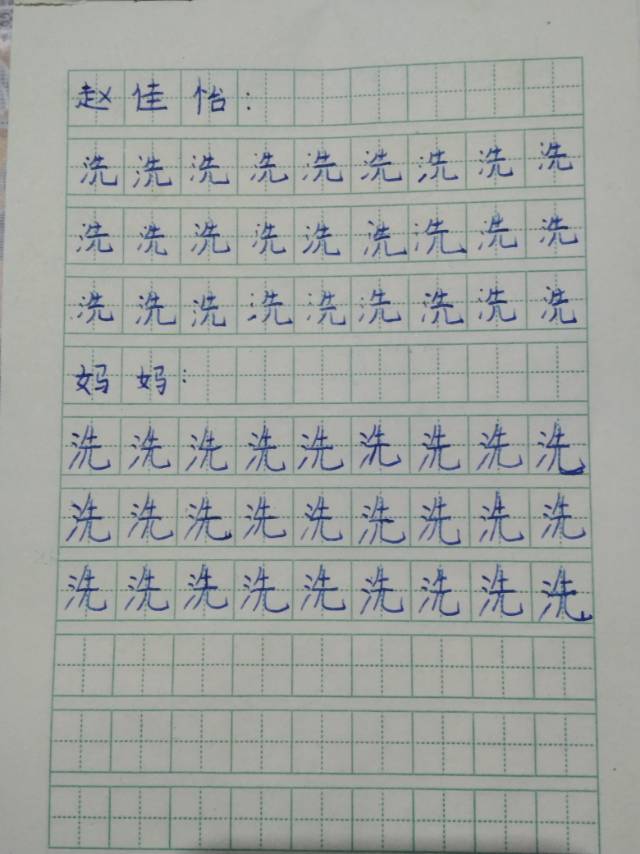 赵佳怡:
洗洗洗洗洗洗洗洗洗
洗洗洗洗洗洗洗洗洗
洗洗洗洗洗洗洗洗洗
妈妈:
洗洗洗洗洗洗洗洗洗
洗洗洗洗洗洗洗洗洗
洗洗洗洗洗洗洗洗洗